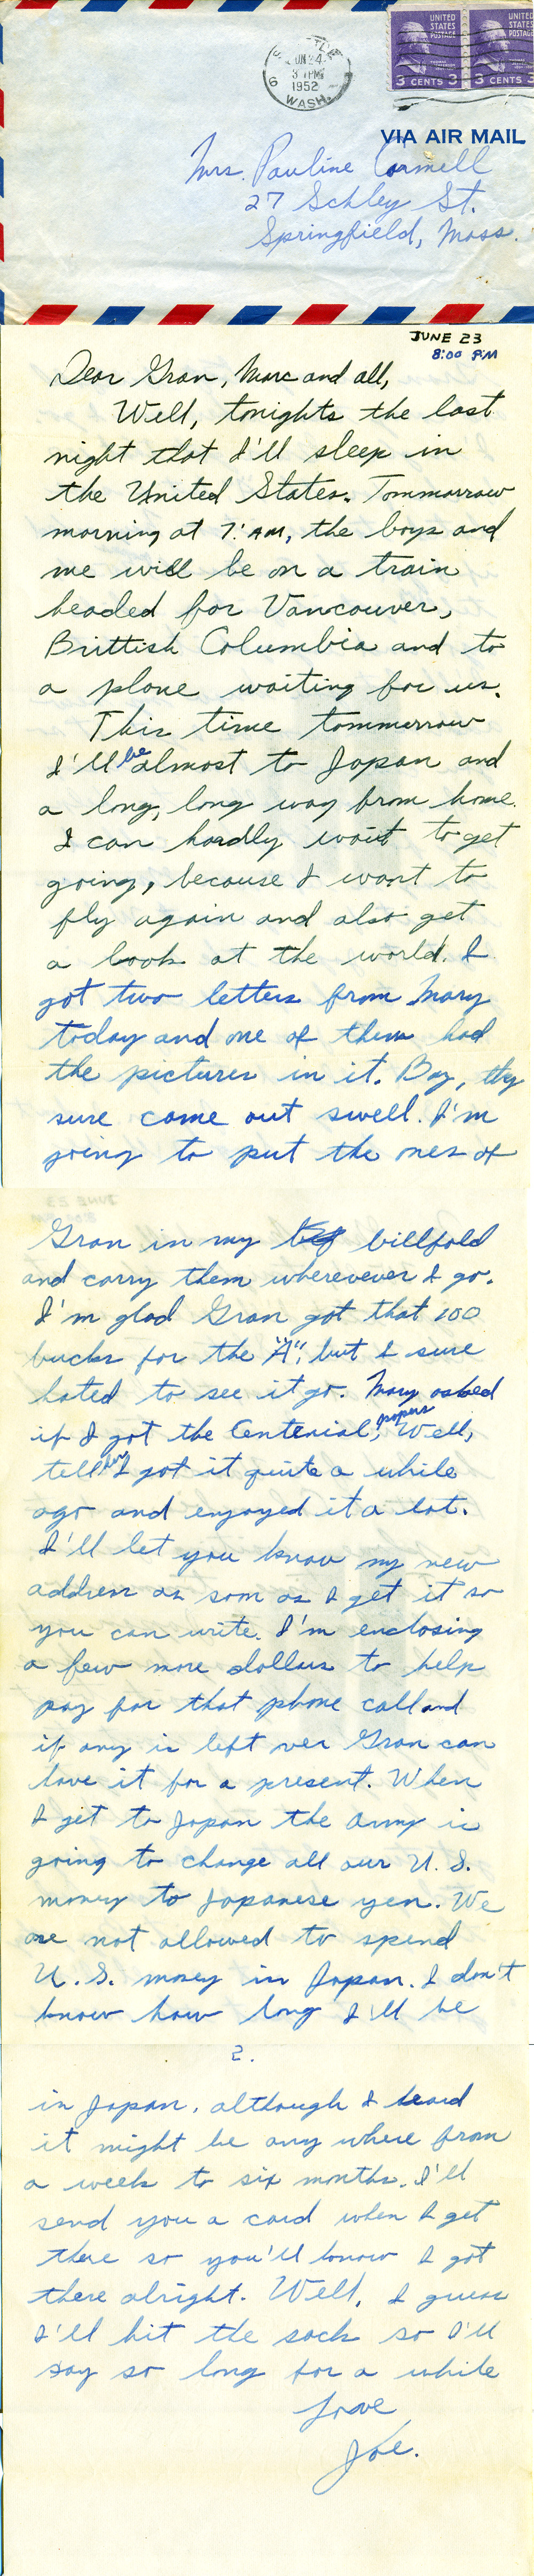 UNITED STATES POSTAGE
UNITED STATES POSTAGE
3 CENTS 3
3 CENTS 3
JUN 24
3 PM
1952
WASH.
VIA AIR MAIL
Mrs. Pauline Cormell
27 Schley St.
Springfield, Mass.
JUNE 23
8:00 PM
Dear Gran, Marc and all,
Well, tonights the last
night that I'll sleep in
the United States. Tommarrow
morning at 7: AM, the boys and
me will be on a train
headed for Vancouver,
Brittish Columbia and to
a plane waiting for us.
This time tommerrow
I'll be almost to Japan and
a long, long way from home.
I can hardly wait to get
going, because I want to
fly again and also get
a look at the world. I
got two letters from Mary
today and one of them had
the pictures in it. Boy, thy
sure came out swell. I'm
going to put the ones of
Gran in my billfold
and carry them wherevever I go.
I'm glad Gran got that 100
bucks for the "A", but I sure
hated to see it go. Mary asked
if I got the Centenial papers, Well,
tell her I got it quite a while
ago and enjoyed it a lot.
I'll let you know my new
address as soon as I get it so
you can write. I'm enclosing
a few more dollars to help
pay for that phone call and
if any is left over Gran can
have it for a present. When
I get to Japan the army is
going to change all our U.S.
money to Japanese yen. We
are not allowed to spend
U.S. money in Japan. I don't
know how long I'll be
2.
in Japan, although I heard
it might be any where from
a week to six months. I'll
send you a card when I get
there so you'll know I got
there alright. Well, I guess
I'll hit the sack so I'll
say so long for a while
Love
Joe.